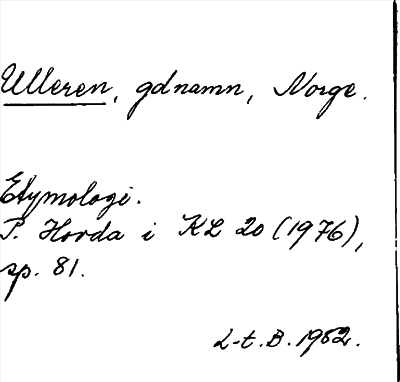 Ulleren, gdnamn, Norge.
Etymologi.
P. Horda i KL 20 (1976),
sp. 81.
L-t. B. 1982.